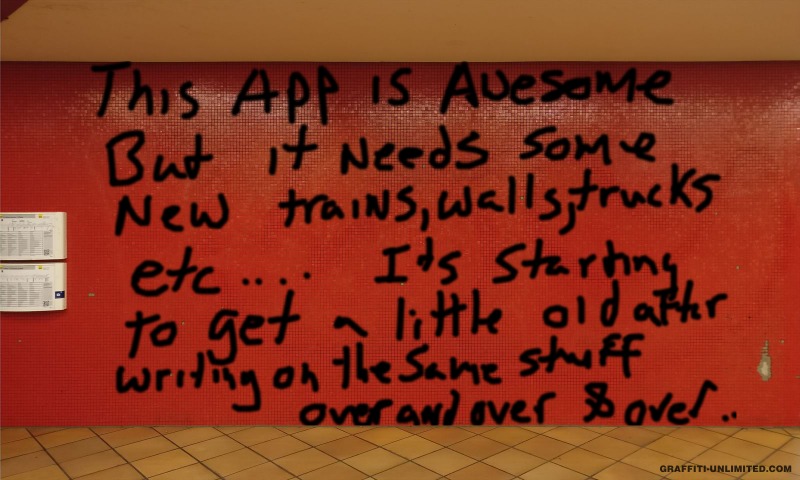 This App is Awesome
But it Needs Some
New trains, walls, trucks
etc.... It's Starting
to get a little old after
writing on the Same stuff
over and over & over..
GRAFFITI-UNLIMITED.COM